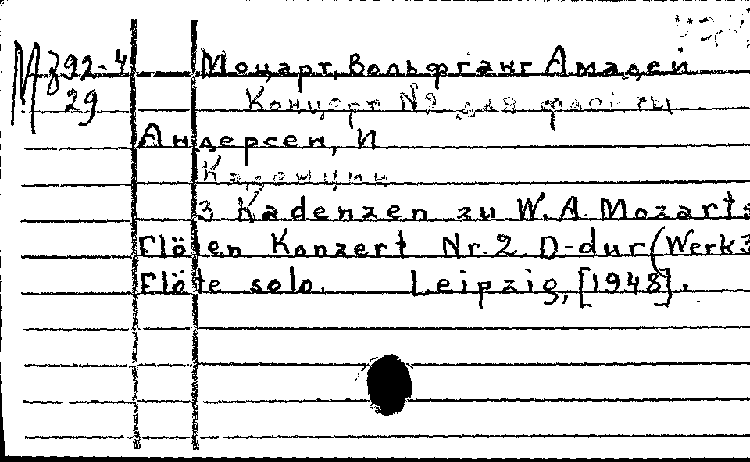 М з92-4 Моцарт, Вольфганг Амадей
29 Концерт №2 для флейты
Андерсен, И
Каденции
3 Kadenzen zu W. A. Mozarts
Flöten Konzert Nr. 2. D-dur (Werk 3
Flöte solo. Leipzig, [1948].